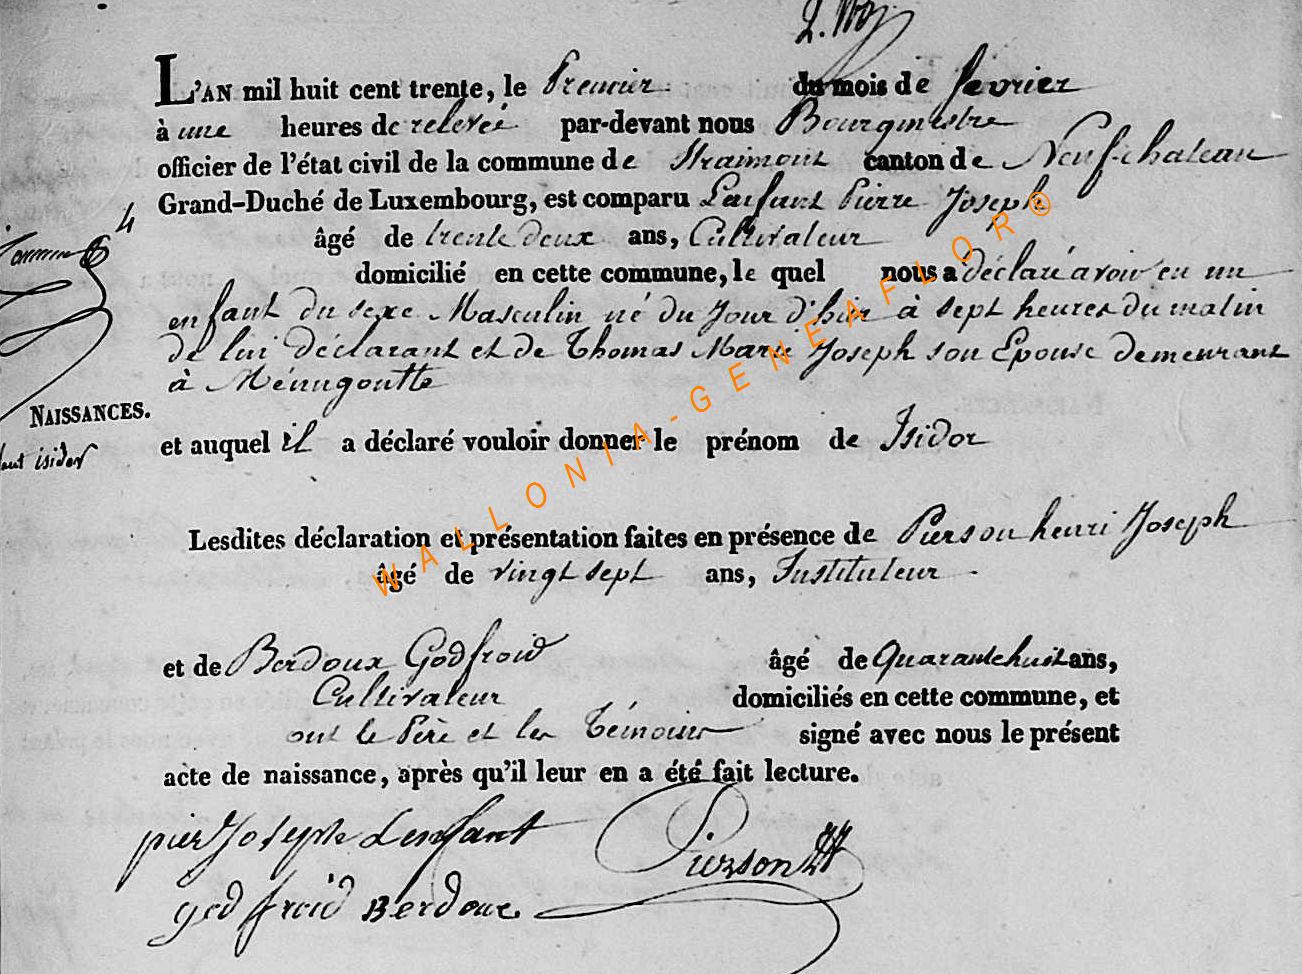 L'AN mil huit cent trente, le Premier du mois de fevrier
à une heures de relevée par-devant nous Bourgmestre
officier de l'état civil de la commune de Straimont canton de Neufchateau
Grand-Duché de Luxembourg, est comparu Lenfant Pierre Joseph
4
âgé de trente deux ans, Cultivateur
domicilié en cette commune, le quel nous a déclaré avoir eu un
enfant du sexe Masculin né du Jour d'hier à sept heures du matin
de lui déclarant et de Thomas Marie Joseph son Epouse demeurant
à Ménugoutte
NAISSANCES.
et auquel il a déclaré vouloir donner le prénom de Isidor
isidor
Lesdites déclaration et présentation faites en présence de Pierson henri Joseph
âgé de vingt sept ans, Instituteur
et de Berdoux Godfroid âgé de Quarante huit ans,
Cultivateur domiciliés en cette commune, et
ont le Père et les Témoins signé avec nous le présent
acte de naissance, après qu'il leur en a été fait lecture.
pier Joseph Lenfant Pierson
godfroid Berdoux
WALLONIA-GENEAFLOR®